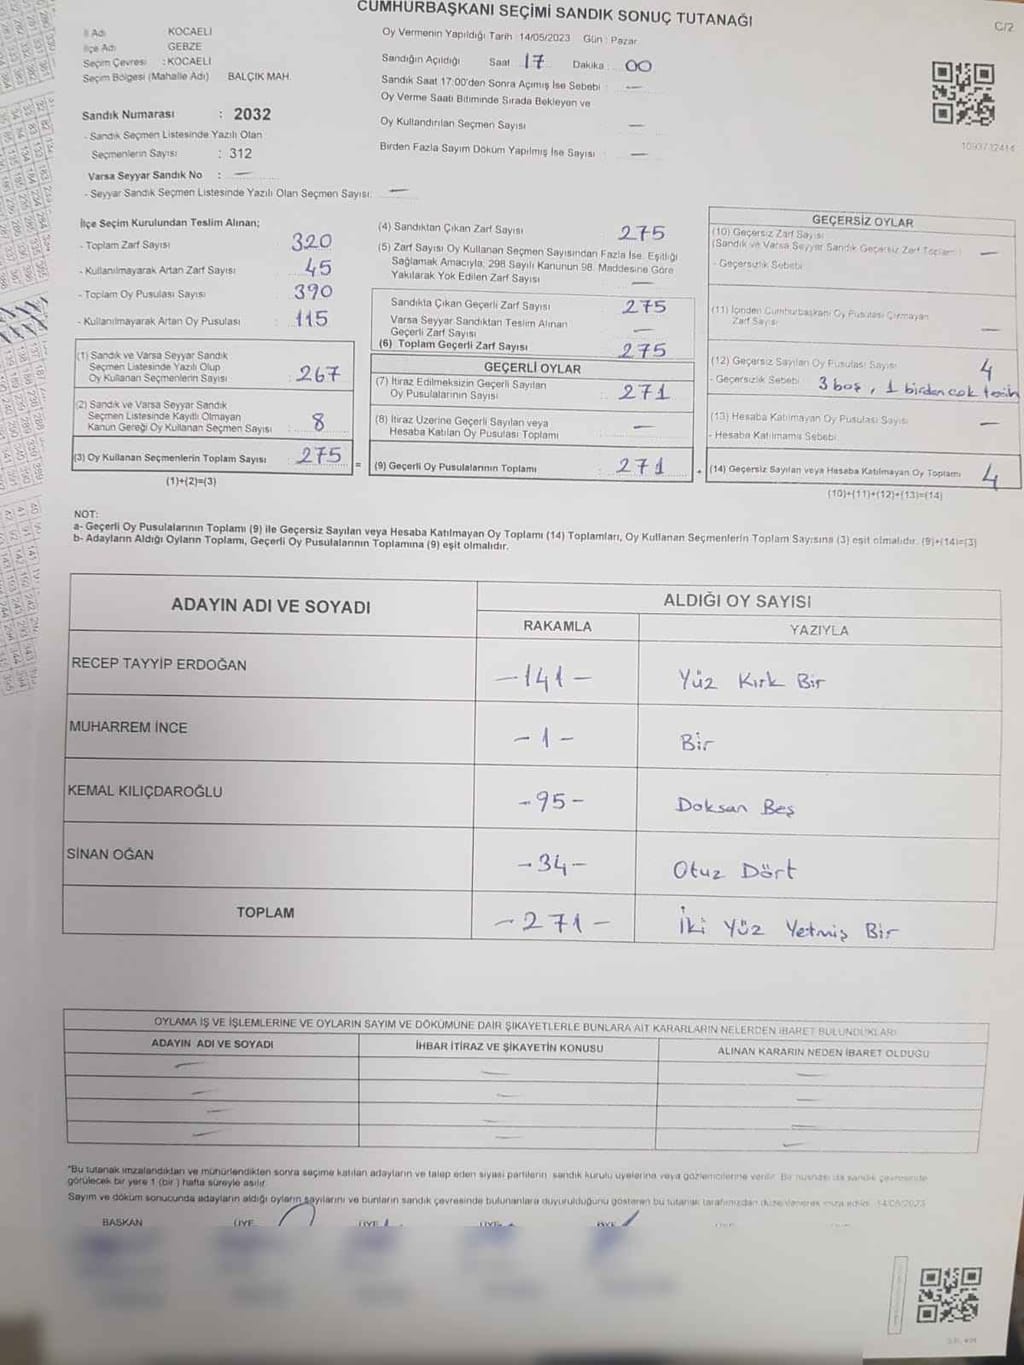 CUMHURBAŞKANI SEÇİMİ SANDIK SONUÇ TUTANAĞI
C/2
İl Adı KOCAELİ
İlçe Adı GEBZE
Seçim Çevresi : KOCAELİ
Seçim Bölgesi (Mahalle Adı) BALÇIK MAH.
Oy Vermenin Yapıldığı Tarih : 14/05/2023 Gün : Pazar
Sandığın Açıldığı Saat 17 Dakika : 00
Sandık Saat 17:00'den Sonra Açımış İse Sebebi : —
Oy Verme Saati Bitiminde Sırada Bekleyen ve
Oy Kullandırılan Seçmen Sayısı —
Birden Fazla Sayım Döküm Yapılmış İse Sayısı —
1093732414
Sandık Numarası : 2032
- Sandık Seçmen Listesinde Yazılı Olan
Seçmenlerin Sayısı : 312
Varsa Seyyar Sandık No : —
- Seyyar Sandık Seçmen Listesinde Yazılı Olan Seçmen Sayısı: —
İlçe Seçim Kurulundan Teslim Alınan;
- Toplam Zarf Sayısı 320
- Kullanılmayarak Artan Zarf Sayısı 45
- Toplam Oy Pusulası Sayısı 390
- Kullanılmayarak Artan Oy Pusulası : 115
(1) Sandık ve Varsa Seyyar Sandık
Seçmen Listesinde Yazılı Olup
Oy Kullanan Seçmenlerin Sayısı : 267
(2) Sandık ve Varsa Seyyar Sandık
Seçmen Listesinde Kayıtlı Olmayan
Kanun Gereği Oy Kullanan Seçmen Sayısı : 8
(3) Oy Kullanan Seçmenlerin Toplam Sayısı : 275 =
(1)+(2)=(3)
(4) Sandıktan Çıkan Zarf Sayısı 275
(5) Zarf Sayısı Oy Kullanan Seçmen Sayısından Fazla İse, Eşitliği
Sağlamak Amacıyla, 298 Sayılı Kanunun 98. Maddesine Göre
Yakılarak Yok Edilen Zarf Sayısı —
Sandıkta Çıkan Geçerli Zarf Sayısı 275
Varsa Seyyar Sandıktan Teslim Alınan
Geçerli Zarf Sayısı —
(6) Toplam Geçerli Zarf Sayısı 275
GEÇERLİ OYLAR
(7) İtiraz Edilmeksizin Geçerli Sayılan
Oy Pusulalarının Sayısı : 271
(8) İtiraz Üzerine Geçerli Sayılan veya
Hesaba Katılan Oy Pusulası Toplamı —
(9) Geçerli Oy Pusulalarının Toplamı : 271 +
GEÇERSİZ OYLAR
(10) Geçersiz Zarf Sayısı
(Sandık ve Varsa Seyyar Sandık Geçersiz Zarf Toplamı) —
- Geçersizlik Sebebi
(11) İçinden Cumhurbaşkanı Oy Pusulası Çıkmayan
Zarf Sayısı —
(12) Geçersiz Sayılan Oy Pusulası Sayısı 4
- Geçersizlik Sebebi 3 boş, 1 birden çok tercih
(13) Hesaba Katılmayan Oy Pusulası Sayısı —
- Hesaba Katılmama Sebebi
(14) Geçersiz Sayılan veya Hesaba Katılmayan Oy Toplamı 4
(10)+(11)+(12)+(13)=(14)
NOT:
a- Geçerli Oy Pusulalarının Toplamı (9) ile Geçersiz Sayılan veya Hesaba Katılmayan Oy Toplamı (14) Toplamları, Oy Kullanan Seçmenlerin Toplam Sayısına (3) eşit olmalıdır. (9)+(14)=(3)
b- Adayların Aldığı Oyların Toplamı, Geçerli Oy Pusulalarının Toplamına (9) eşit olmalıdır.
ADAYIN ADI VE SOYADI
ALDIĞI OY SAYISI
RAKAMLA YAZIYLA
RECEP TAYYİP ERDOĞAN -141- Yüz Kırk Bir
MUHARREM İNCE -1- Bir
KEMAL KILIÇDAROĞLU -95- Doksan Beş
SİNAN OĞAN -34- Otuz Dört
TOPLAM -271- İki Yüz Yetmiş Bir
OYLAMA İŞ VE İŞLEMLERİNE VE OYLARIN SAYIM VE DÖKÜMÜNE DAİR ŞİKAYETLERLE BUNLARA AİT KARARLARIN NELERDEN İBARET BULUNDUKLARI
ADAYIN ADI VE SOYADI İHBAR İTİRAZ VE ŞİKAYETİN KONUSU ALINAN KARARIN NEDEN İBARET OLDUĞU
"Bu tutanak imzalandıktan ve mühürlendikten sonra seçime katılan adayların ve talep eden siyasi partilerin sandık kurulu üyelerine veya gözlemcilerine verilir. Bir nüshası da sandık çevresinde
görülecek bir yere 1 (bir ) hafta süreyle asılır.
Sayım ve döküm sonucunda adayların aldığı oyların sayılarını ve bunların sandık çevresinde bulunanlara duyurulduğunu gösteren bu tutanak tarafımızdan düzenlenerek imza edildi. 14/05/2023
BAŞKAN ÜYE ÜYE ÜYE ÜYE